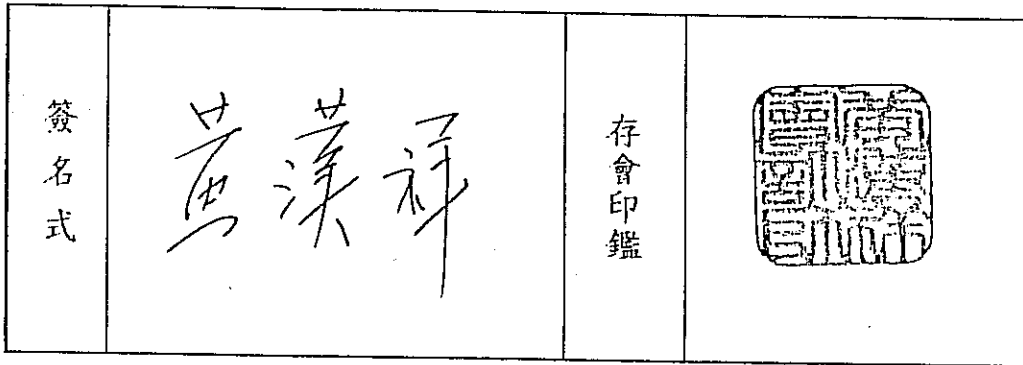 簽名式
黃漢祥
存會印鑑